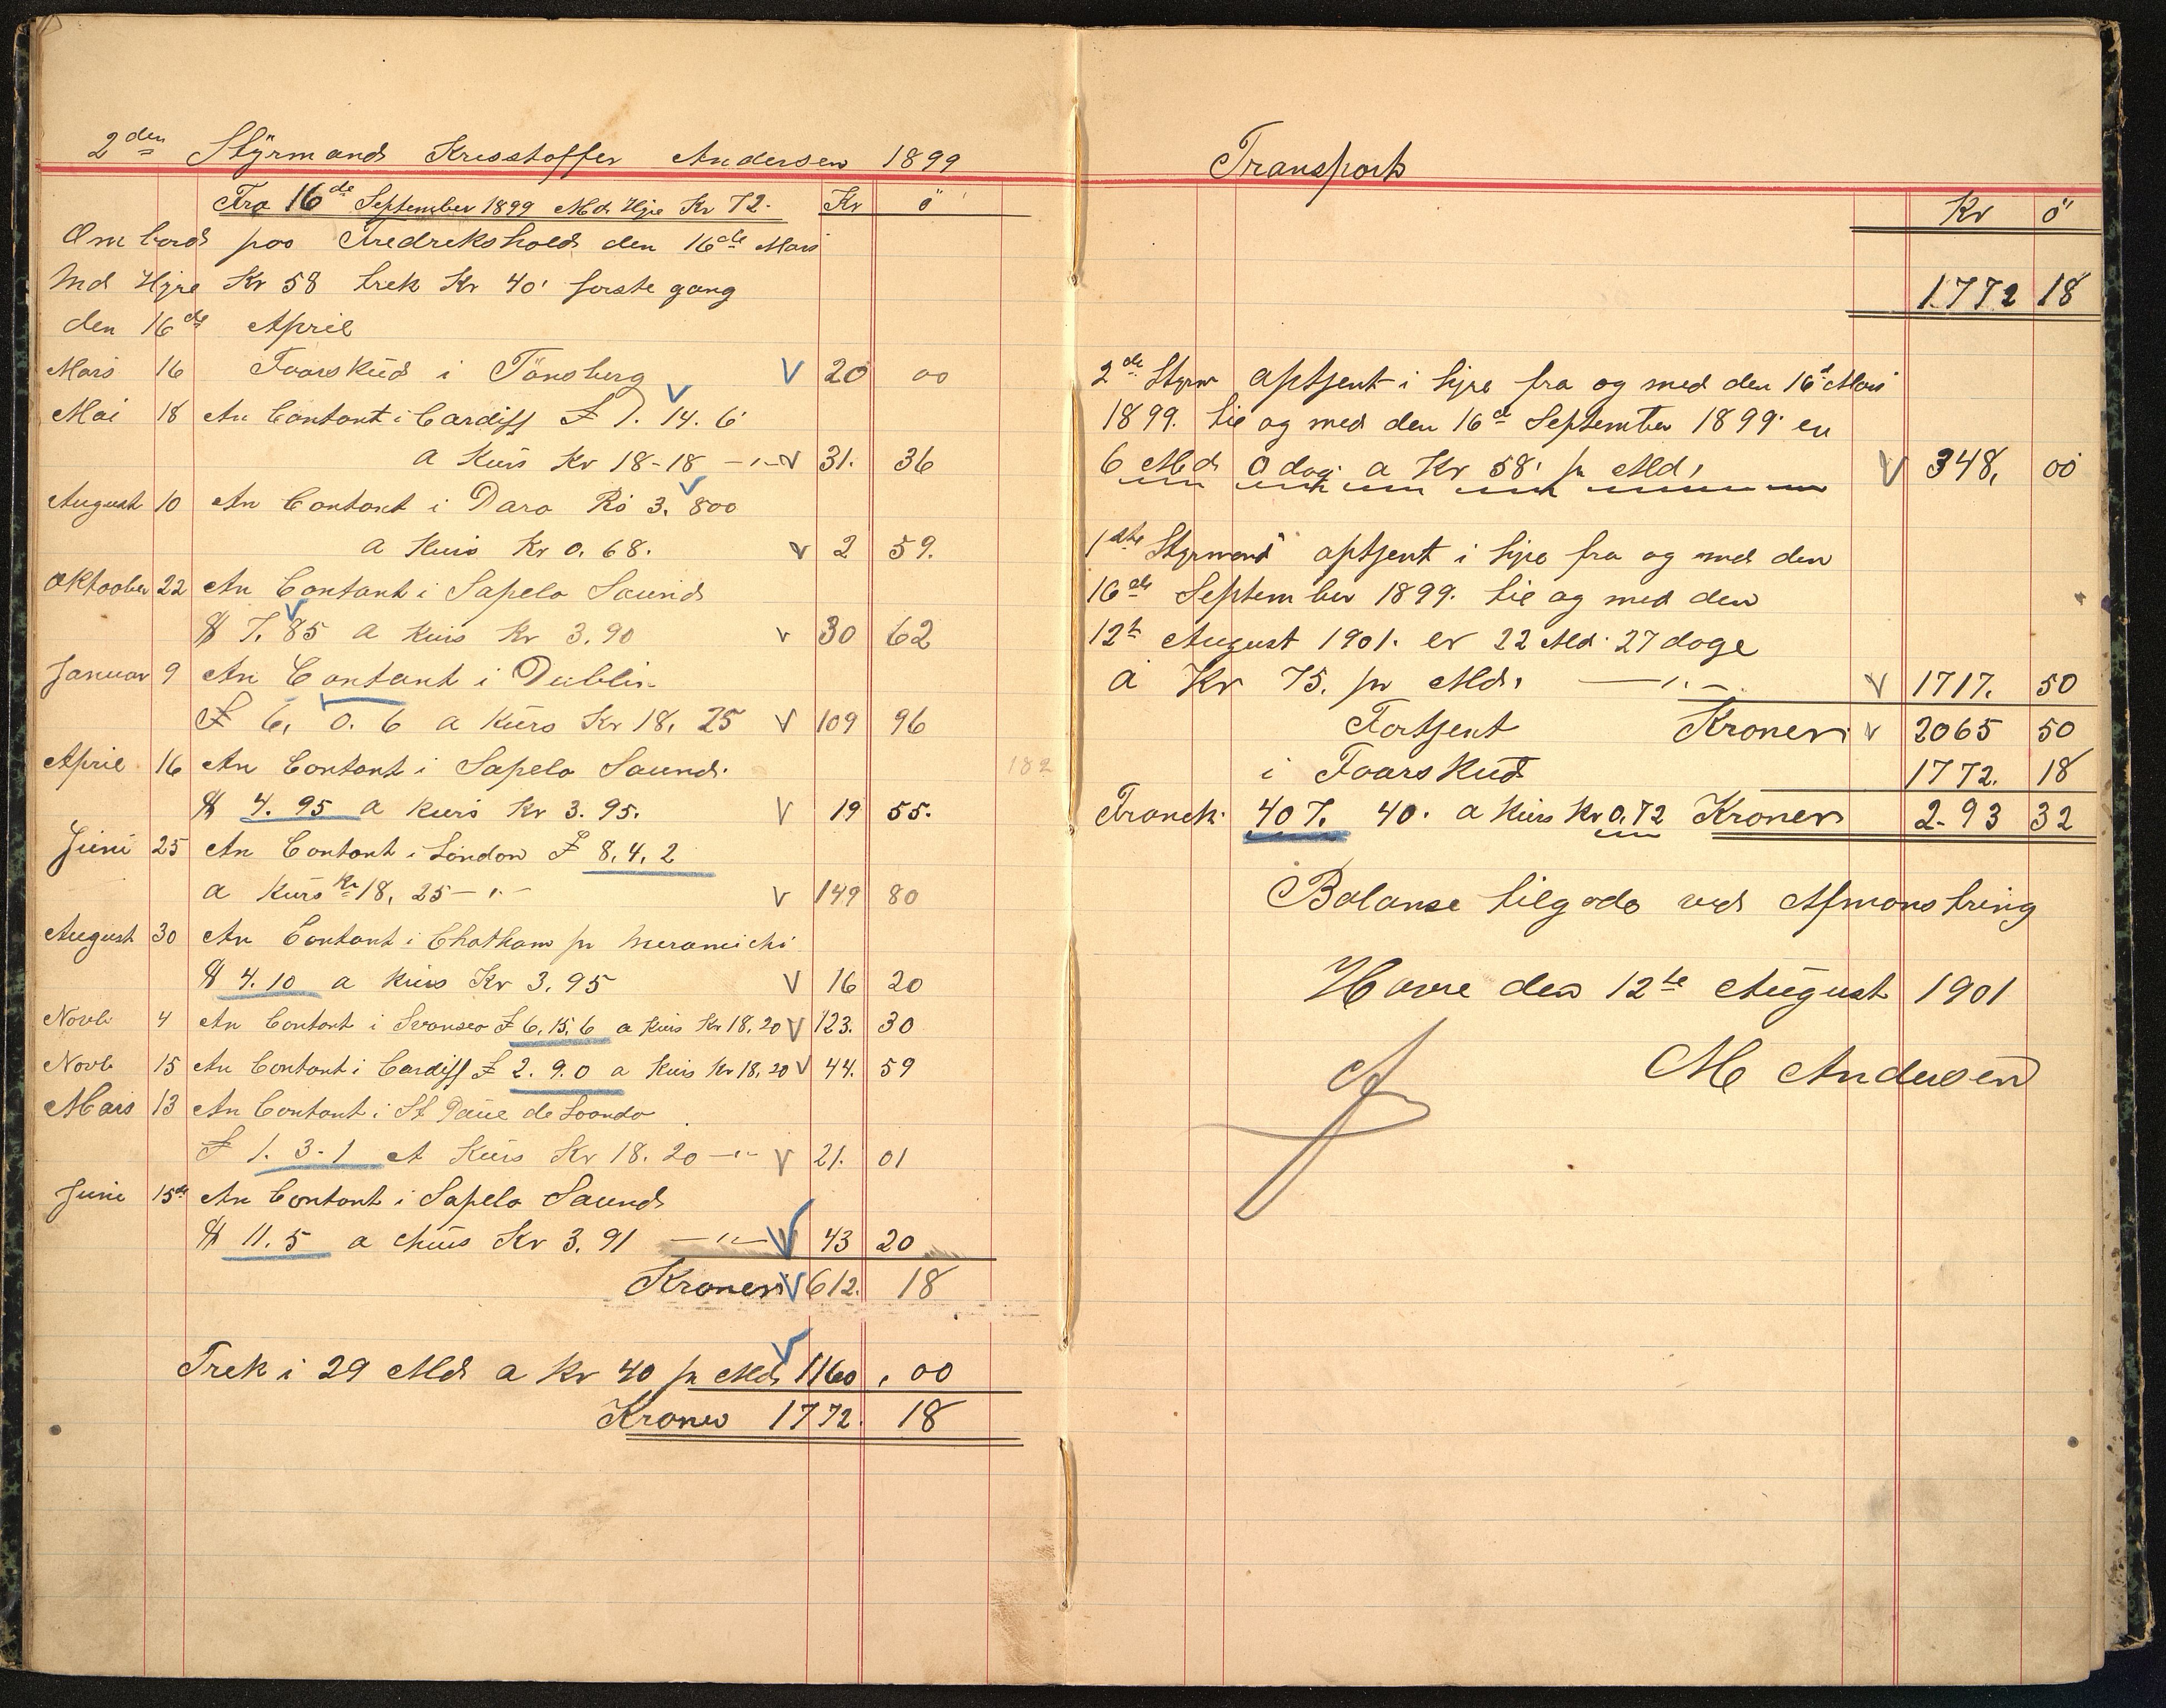 2den Styrmand Kresstoffer Andersen 1899
Fra 16de September 1899 Md Hyre Kr 72. Kr ö
Ombord paa Fredrekshald den 16de Mars
Md Hyre Kr 58 trek Kr 40. forste gang
den 16de April
Mars 16 Foorskud i Tönsberg V 20 00
Mai 18 An Contant i Cardiff £ 1. 14. 6
a Kurs Kr 18-18 -"- V 31. 36
August 10 An Contant i Para Rs 3. 800
a Kurs Kr 0. 68. V 2 59.
Oktoober 22 An Contant i Sapelo Saund
$ 7. 85 a Kurs Kr 3.90 V 30 62
Januar 9 An Contant i Dublin
£ 6. 0. 6 a Kurs Kr 18, 25 V 109 96
April 16 An Contant i Sapelo Saund. 182
$ 4. 95 a kurs Kr 3. 95. V 19 55.
Juni 25 An Contant i London £ 8, 4, 2
a Kurs Kr 18, 25 -"- V 149 80
August 30 An Contant i Chatham pr Meramichi
$ 4. 10 a kurs Kr 3. 95 V 16 20
Novb 4 An Contant i Svansea £ 6, 15, 6 a Kurs Kr 18, 20 V 123. 30
Novb 15 An Contant i Cardiff £ 2. 9. 0 a Kurs Kr 18, 20 V 44. 59
Mars 13 An Contant i St Paul de Loando
£ 1. 3. 1 A Kurs Kr 18. 20 -"- V 21. 01
Juni 15de An Contant i Sapelo Saund
$ 11. 5 a Kurs Kr 3. 91 -"- V 43 20
Kroner V 612. 18
Trek i 29 Md a Kr 40 pr Md 1160, 00
Kroner 1772. 18
Transport
Kr ö
1772 18
2de Styrm aptjent i hyre fra og med den 16d Mars
1899. til og med den 16de September 1899. er
6 Md 0 dag. a Kr 58. pr Md, V 348, 00
1ste Styrmand aptjent i hyre fra og med den
16de September 1899. til og med den
12te August 1901. er 22 Md. 27 dage
á Kr 75. pr Md, -"- V 1717. 50
Fortjent Kroner V 2065 50
i Foorskud 1772. 18
Franck. 407. 40. a Kurs Kr 0,72 Kroner 2-93 32
Balanse tilgode ved Afmonstring
Havre den 12te August 1901
M Andersen